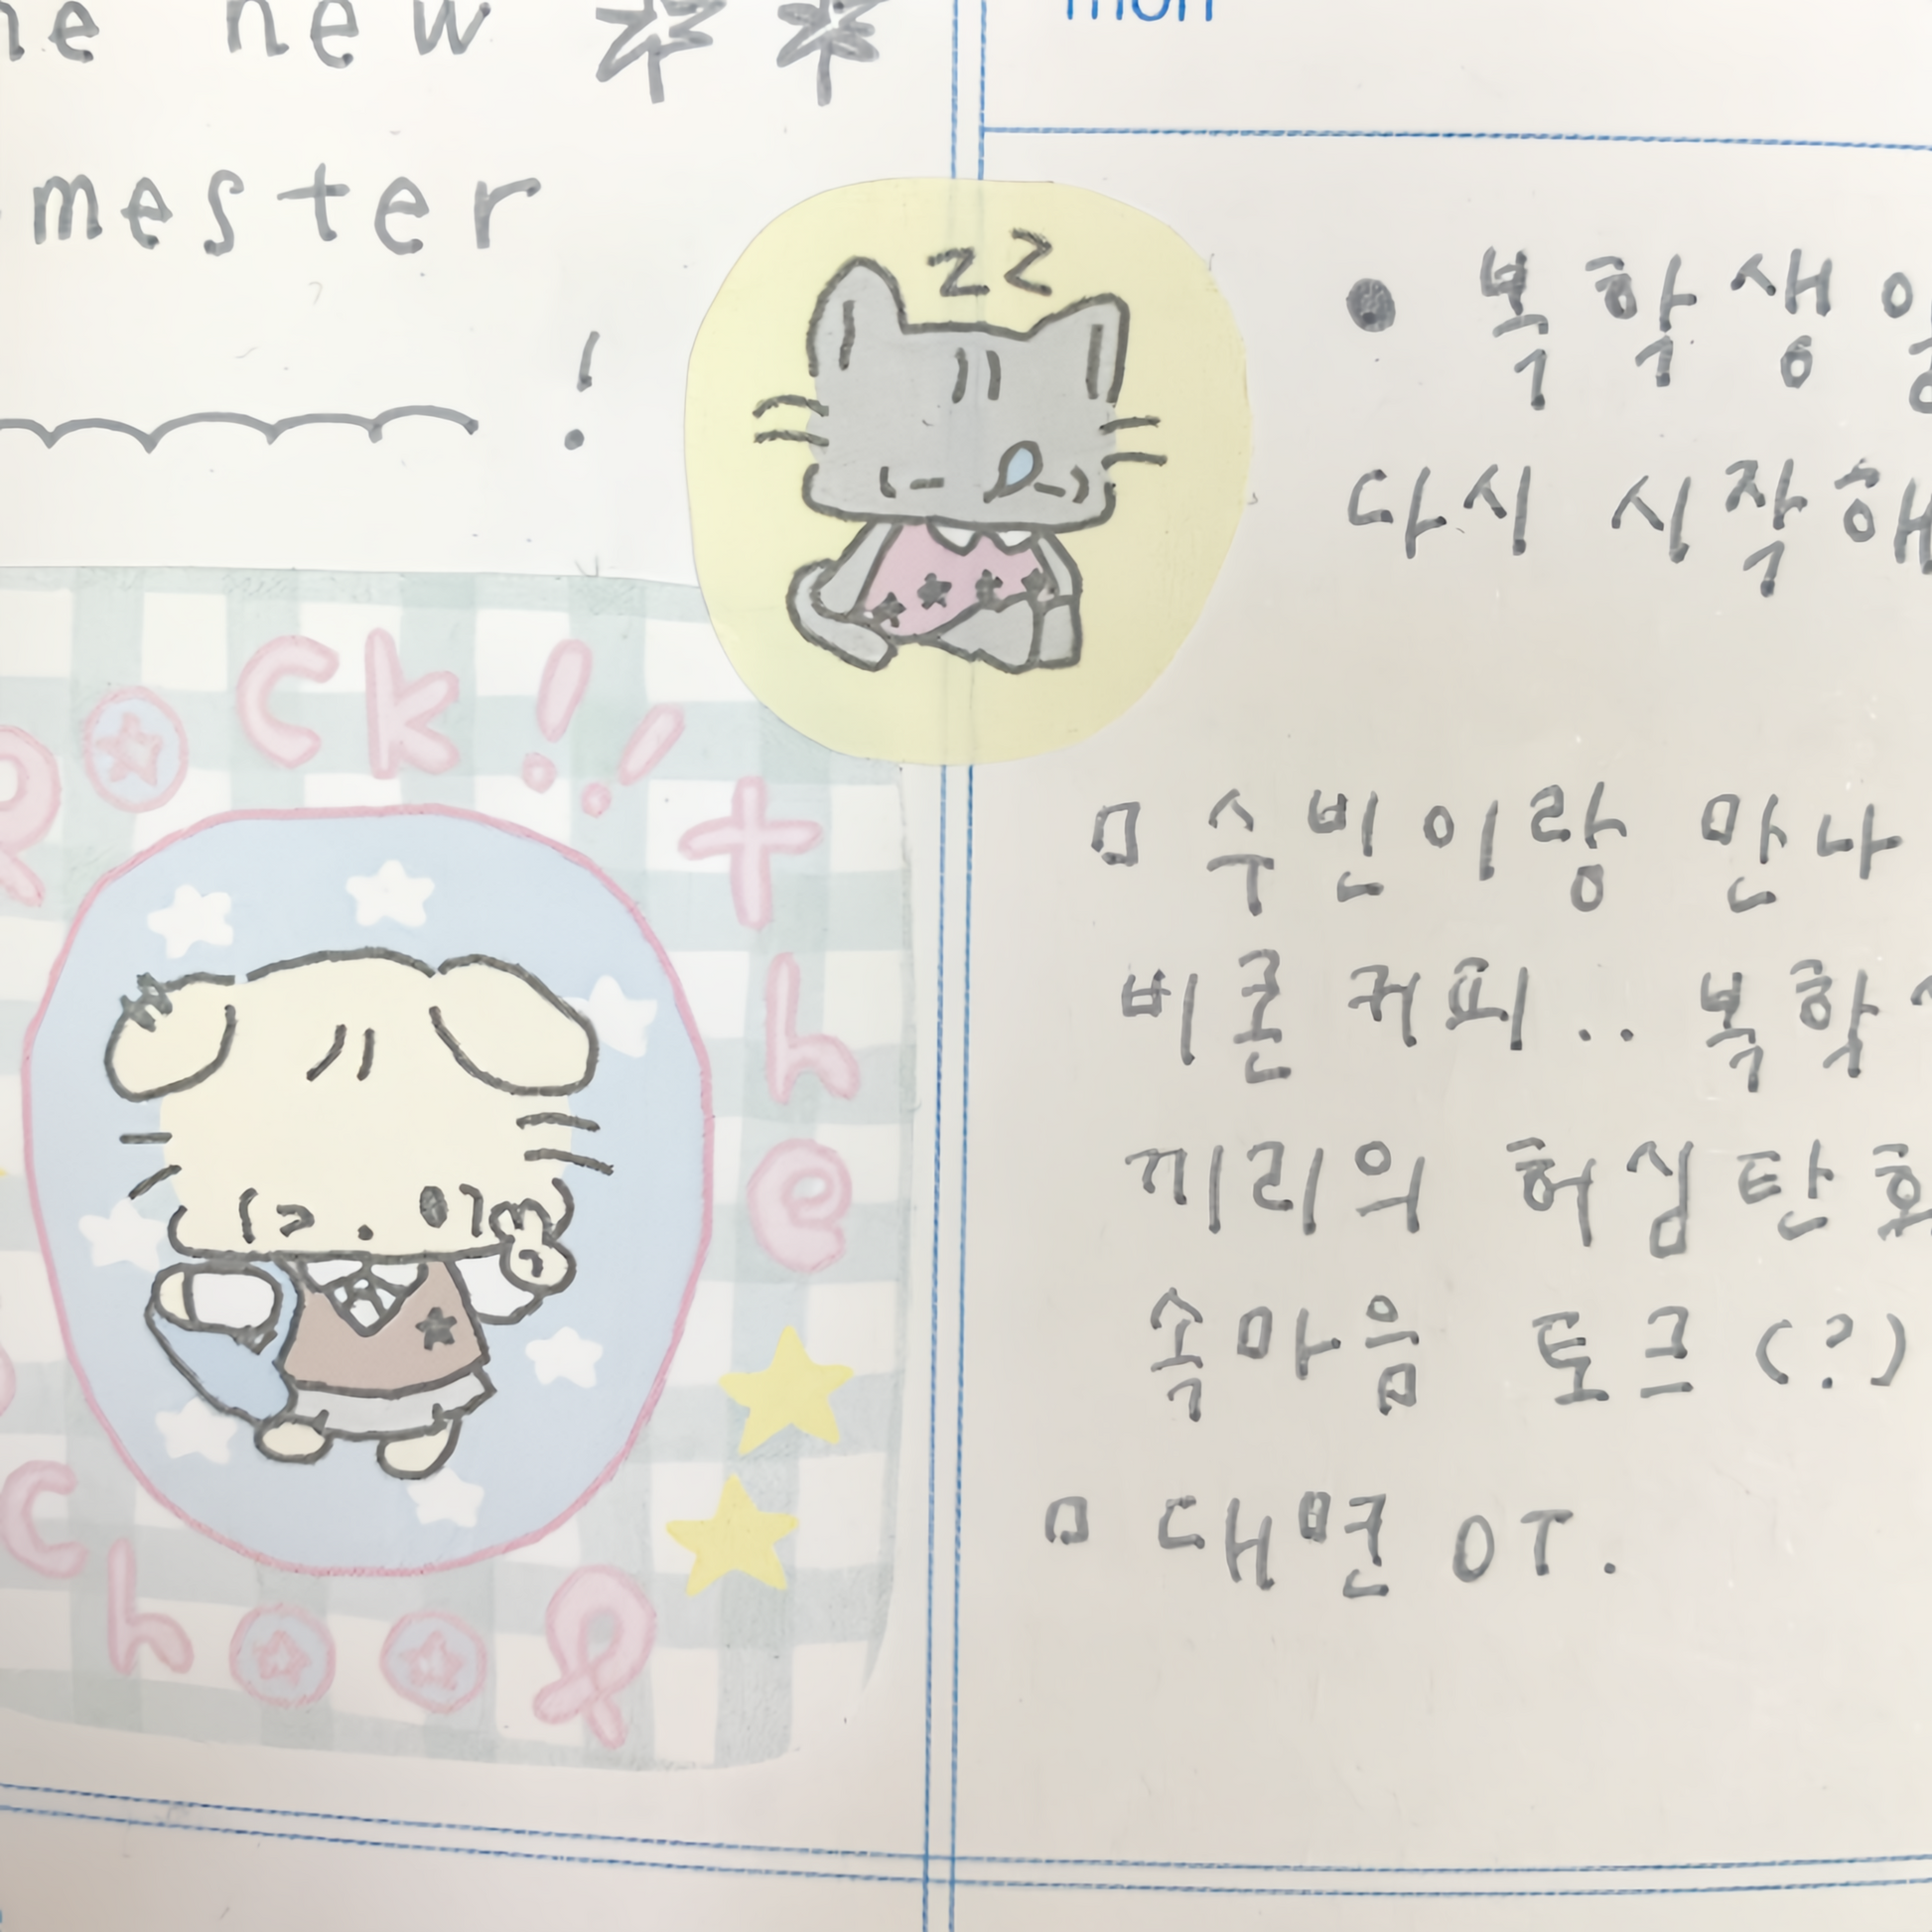 new
mester
!
zz
ROCK!!
the
school
mon
● 복학생
다시 시작해
□ 수빈이랑 만나
비룬 커피.. 복학
끼리의 허심탄회
속마음 토크(?)
□ 대면 OT.